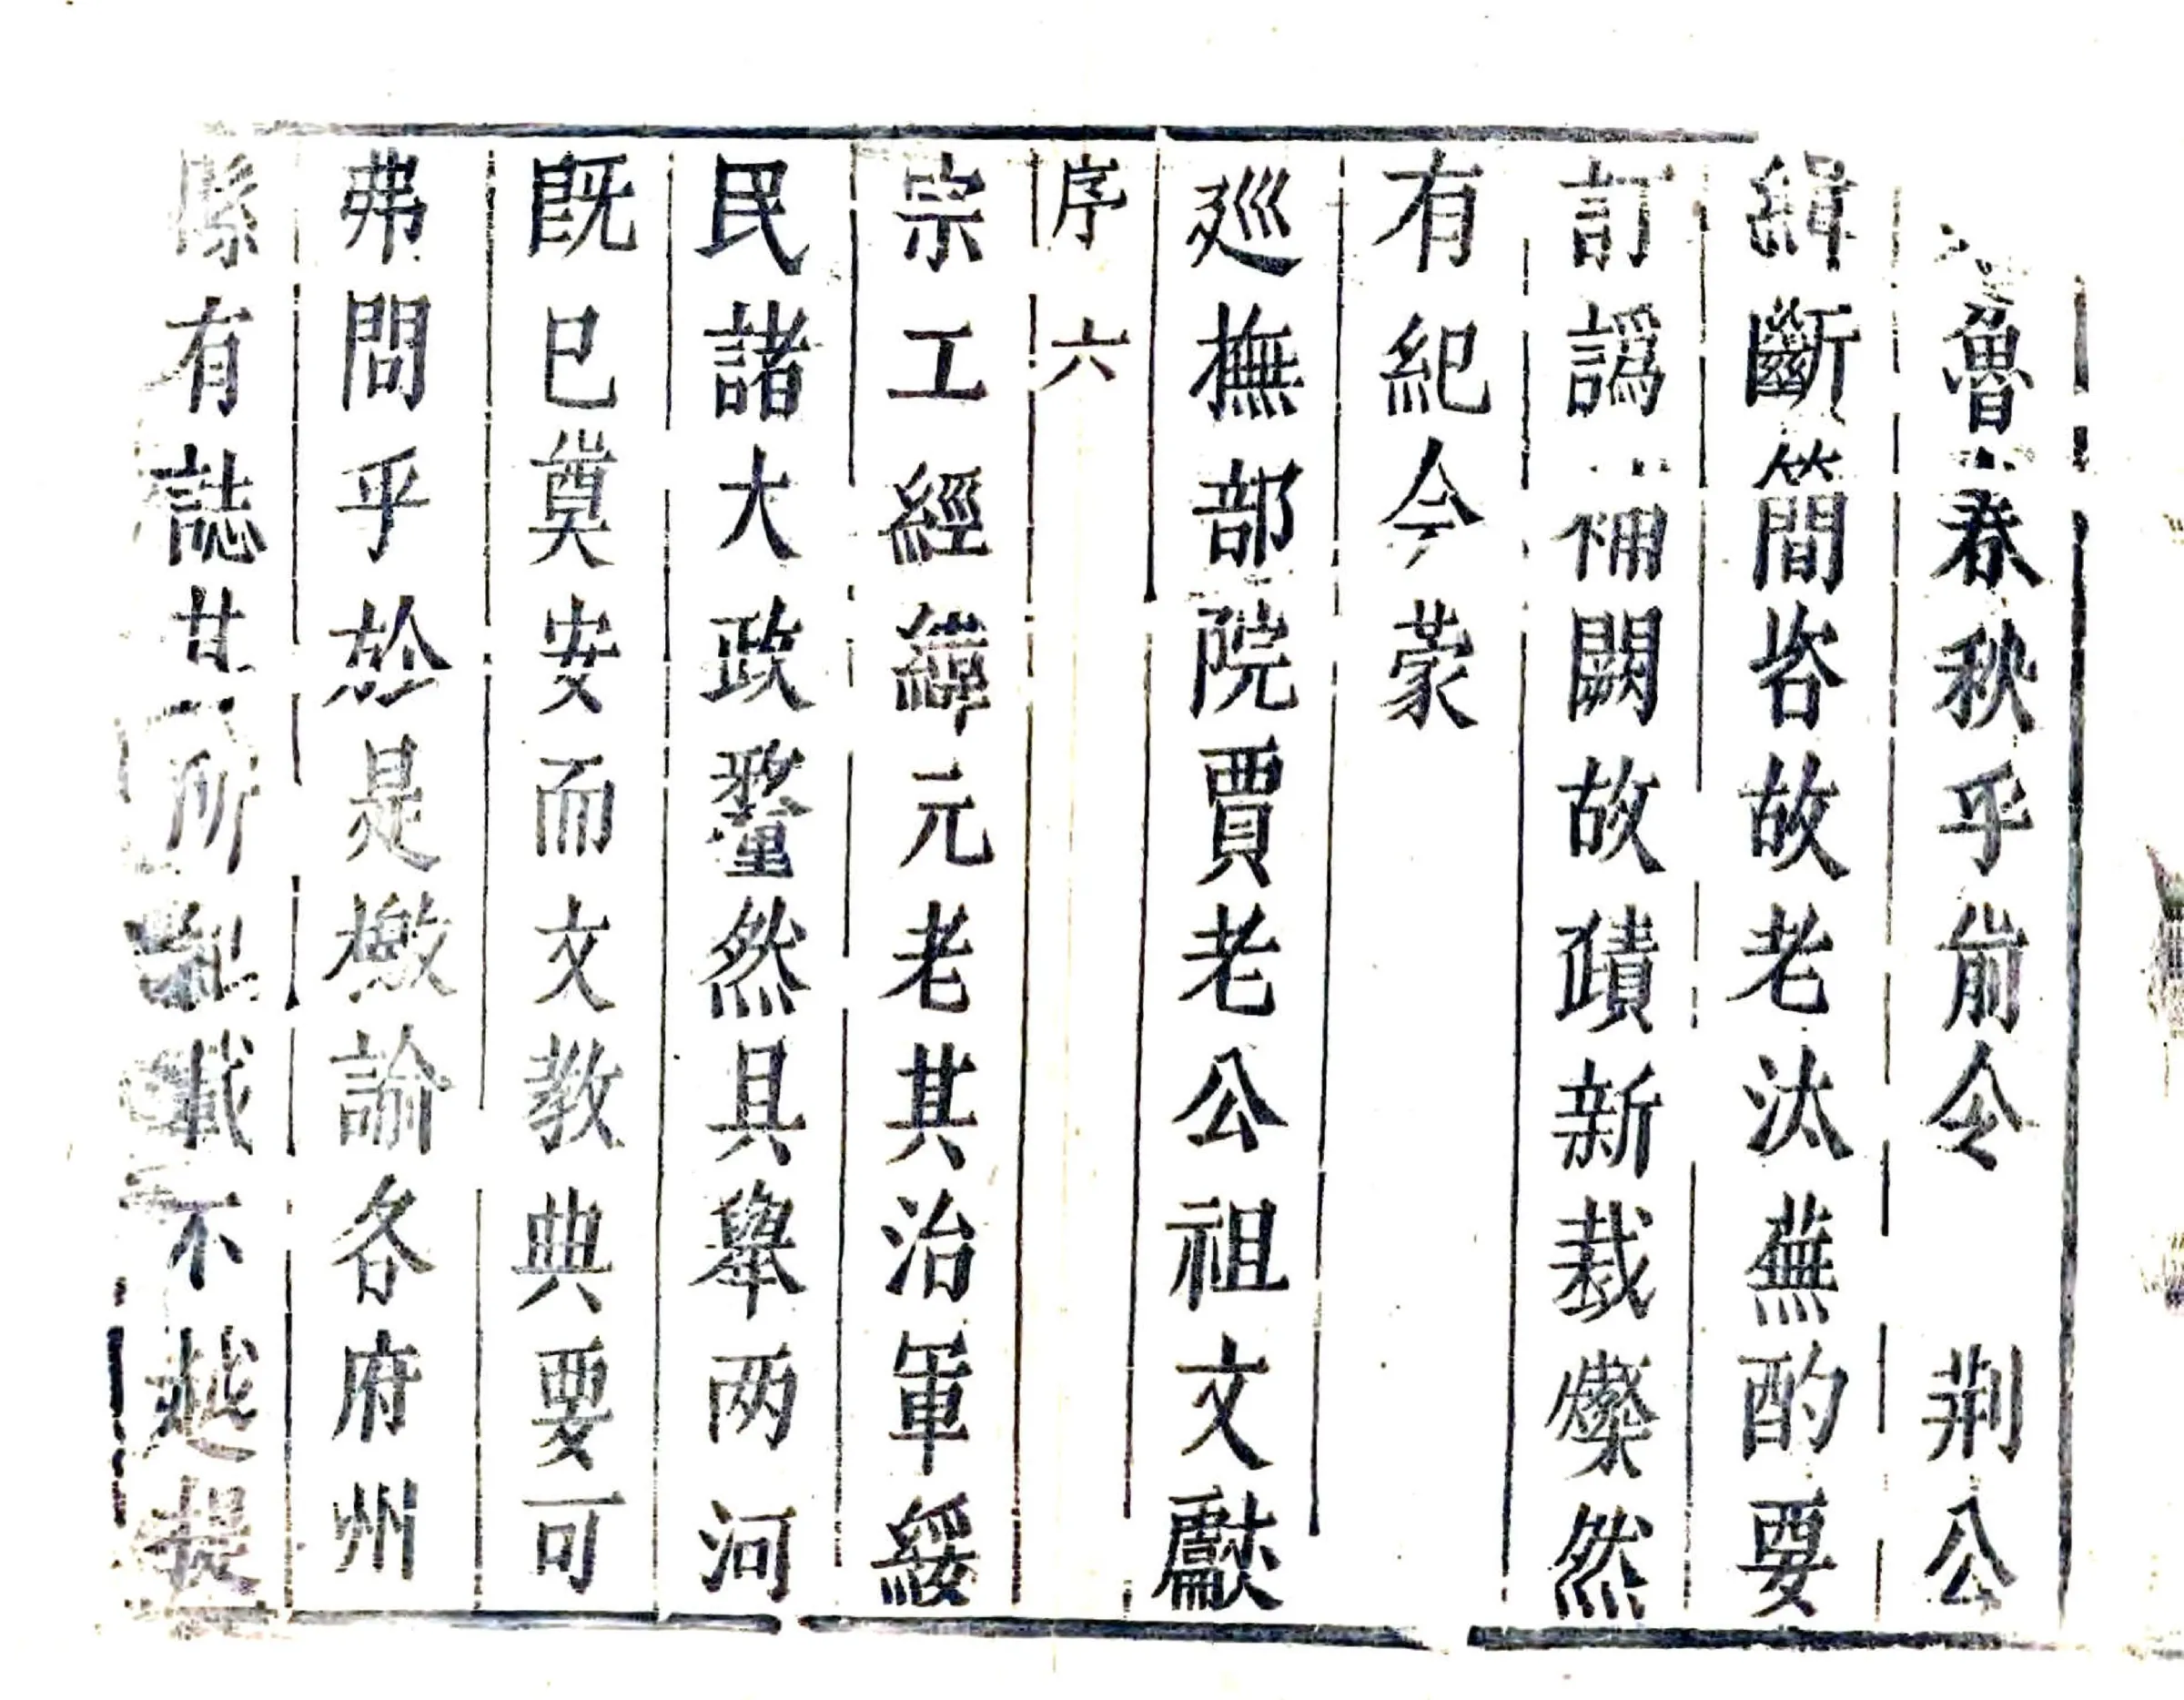 魯春秋乎前令　荆公
緝斷簡咨故老汰蕪酌要
訂譌補闕故蹟新裁燦然
有紀今蒙
廵撫部院賈老公祖文獻
序　六
宗工經緯元老其治軍綏
民諸大政釐然具舉两河
旣已奠安而文教典要可
弗問乎於是檄諭各府州
縣有誌其所紀載不越